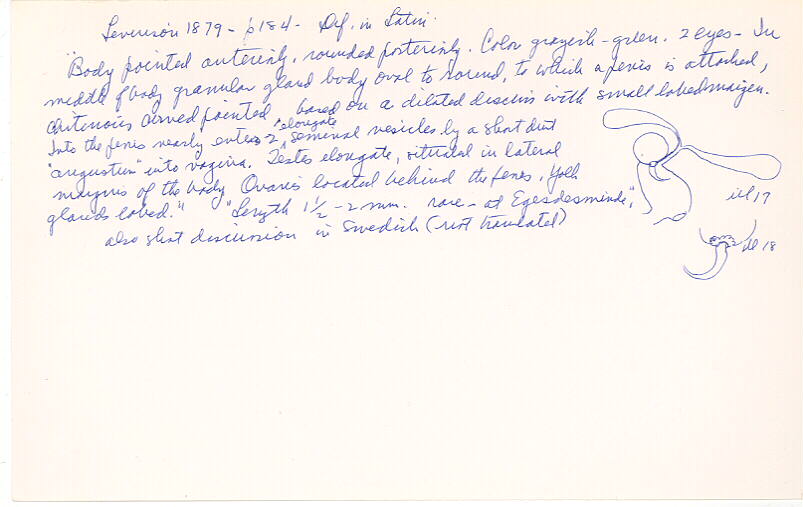 Levenson 1879 - p 184 - Def. in Latin.
"Body pointed anteriorly, rounded posteriorly. Color grayish-green. 2 eyes - In
middle of body granular gland body oval to round, to which a penis is attached,
chitenous curved pointed, based on a dilated discus with small lobed margen.
Into the penis nearly enters 2 elongate seminal vesicles by a short duct
"angustum" into vagina. Testes elongate, situated in lateral
margins of the body Ovaries located behind the penes. Yolk
glands lobed." "Length 1 1/2 - 2 mm. rare - at Egesdesminde",
also short discussion in Swedish (not translated)
ill 17
ill 18